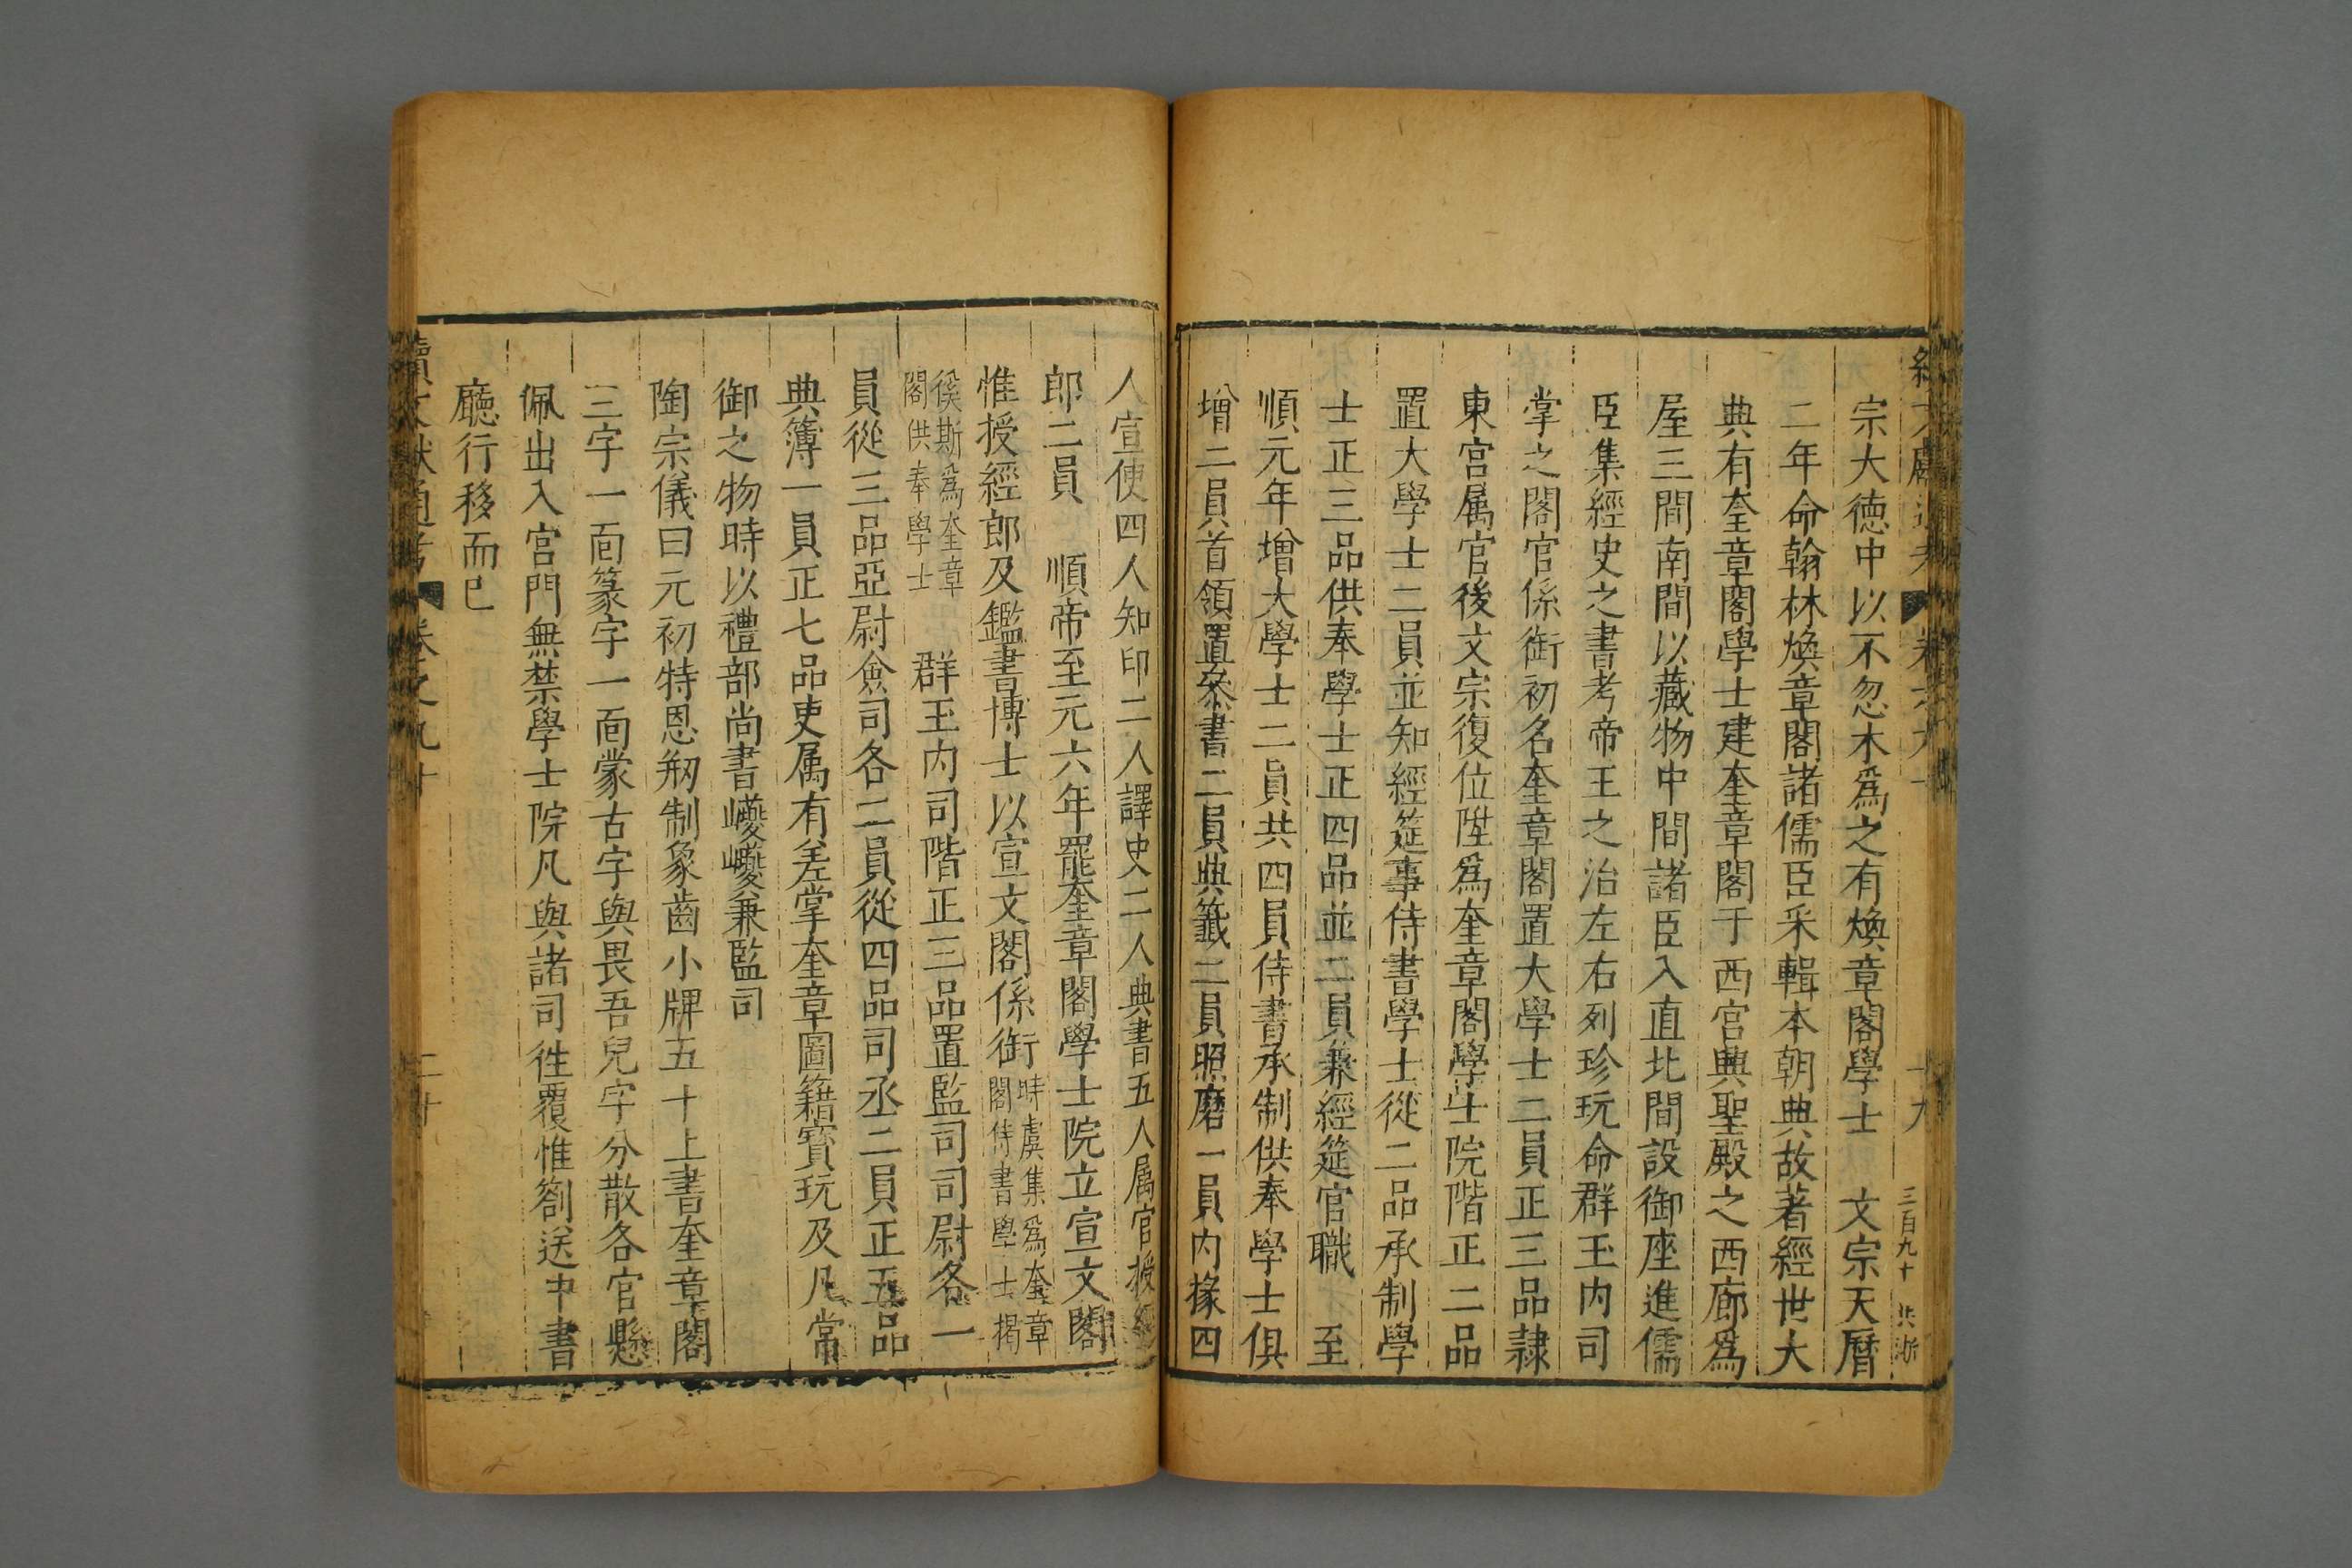 十九
三百九十
宗大德中以不忽木爲之有煥章閣學士　文宗天曆
二年命翰林煥章閣諸儒臣采輯本朝典故著經世大
典有奎章閣學士建奎章閣于西宮興聖殿之西廊爲
屋三間南間以藏物中間諸臣入直北間設御座進儒
臣集經史之書考帝王之治左右列珍玩命群玉内司
掌之閣官係銜初名奎章閣置大學士二員正三品隸
東宮属官後文宗復位陞爲奎章閣學士院階正二品
置大學士二員並知經筵事侍書學士從二品承制學
士正三品供奉學士正四品並二員兼經筵官職　至
順元年增大學士二員共四員侍書承制供奉學士俱
增二員首領置叅書二員典籤二員照磨一員内掾四
人宣使四人知印二人譯史二人典書五人属官授經
郎二員　順帝至元六年罷奎章閣學士院立宣文閣
惟授經郎及鑑書博士以宣文閣係銜時虞集爲奎章閣侍書學士揭
傒斯爲奎章閣供奉學士　群玉内司階正三品置監司司尉各一
員從三品亞尉僉司各二員從四品司丞二員正五品
典簿一員正七品吏属有差掌奎章圖籍寳玩及凡常
御之物時以禮部尚書巙巙兼監司
陶宗儀曰元初特恩剏制象齒小牌五十上書奎章閣
三字一面篆字一面蒙古字與畏吾兒字分散各官懸
佩出入宮門無禁學士院凡與諸司徃覆惟劄送中書
廳行移而已
續文獻通考　卷之九十　二十